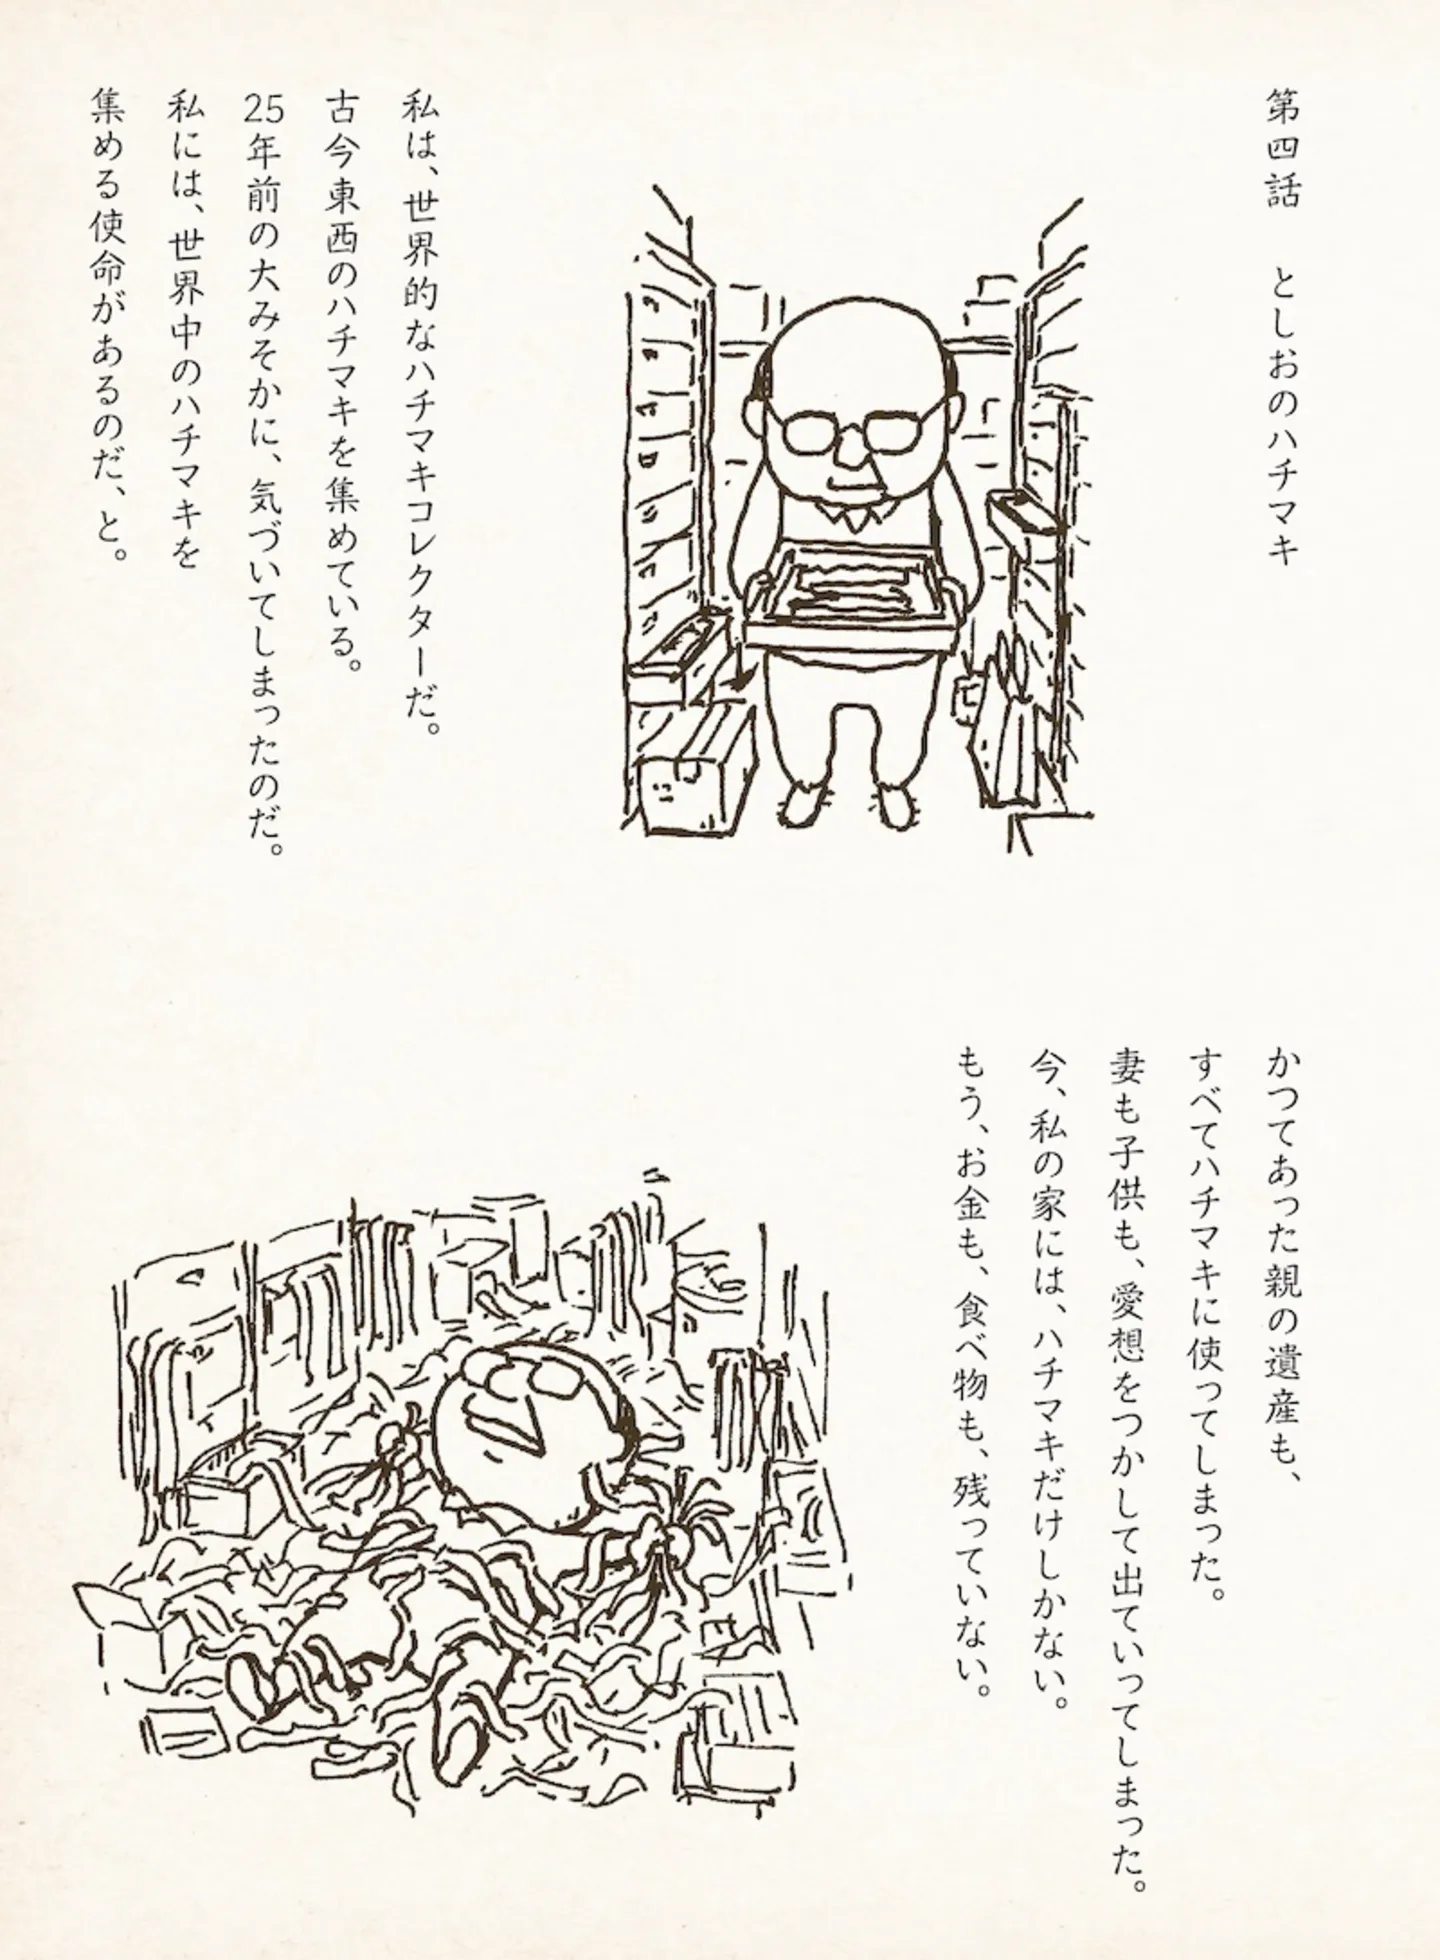 第四話　としおのハチマキ
私は、世界的なハチマキコレクターだ。
古今東西のハチマキを集めている。
25年前の大みそかに、気づいてしまったのだ。
私には、世界中のハチマキを
集める使命があるのだ、と。
かつてあった親の遺産も、
すべてハチマキに使ってしまった。
妻も子供も、愛想をつかして出ていってしまった。
今、私の家には、ハチマキだけしかない。
もう、お金も、食べ物も、残っていない。